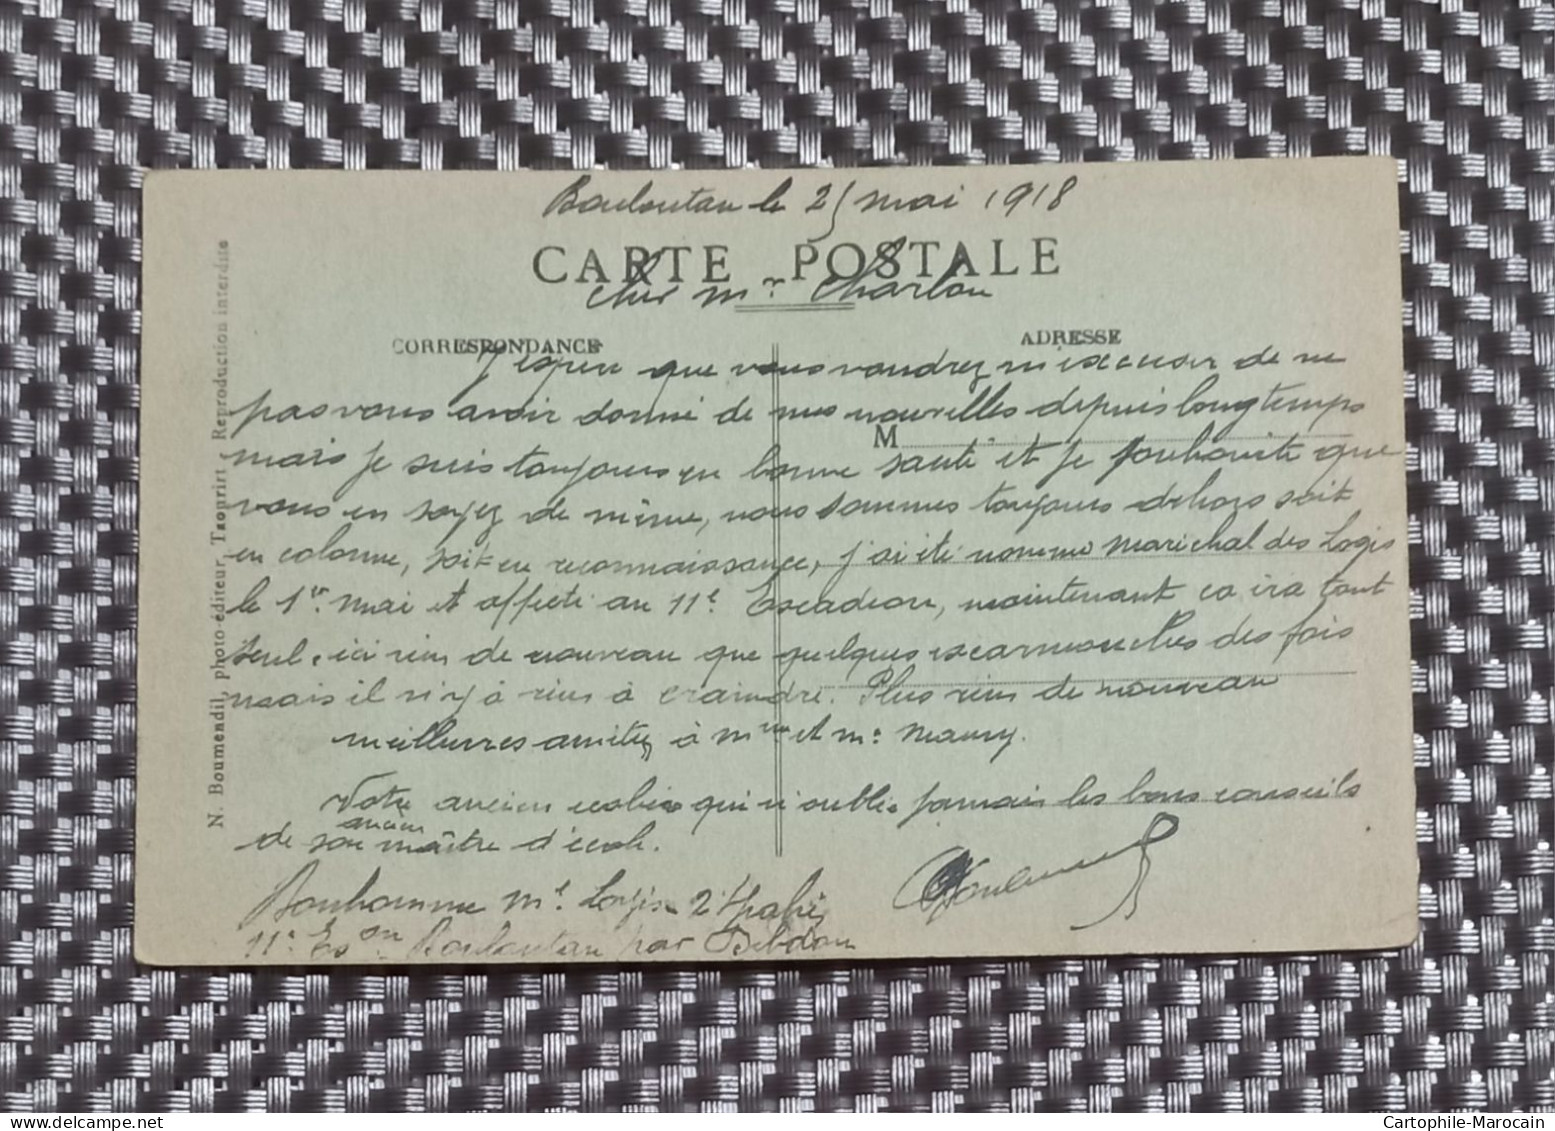 Bouloutan le 25 mai 1918
CARTE POSTALE
Cher Mr. Charlou
CORRESPONDANCE
ADRESSE
J'espere que vous voudrez m'excuser de ne
pas vous avoir donné de mes nouvelles depuis longtemps
M
mais je suis toujours en bonne santé et je souhaite que
vous en soyez de même, nous sommes toujours dehors soit
en colonne, soit en reconnaissance, j'ai été nommé Maréchal des Logis
le 1er mai et affecté au 11e Escadron, maintenant ca ira tout
seul, ici rien de nouveau que quelques escarmouches des fois
mais il n'y à rien à craindre. Plus rien de nouveau
meilleures amitiés à Mme et Mr Maury.
Votre ancien ecolier qui n'oublie jamais les bons conseils
de son ancien maître d'école.
Bonhomme Ml Logis 2e Spahis
11e Eson Bouloutan par Debdou
N. Boumendil, photo-éditeur, Taourirt, Reproduction interdite
Cartophile-Marocain